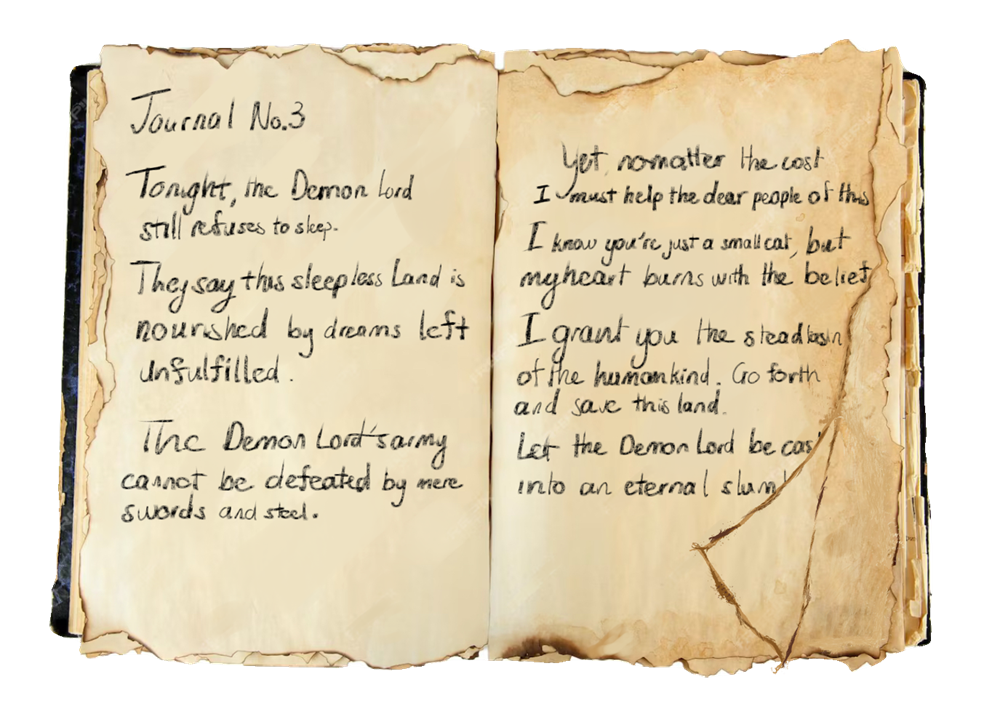 Journal No.3
Tonight, the Demon Lord
still refuses to sleep.
They say this sleepless Land is
nourished by dreams left
unfulfilled.
The Demon Lord's army
cannot be defeated by mere
swords and steel.
Yet, no matter the cost
I must help the dear people of this
I know you're just a small cat, but
my heart burns with the belief
I grant you the
of the humankind. Go forth
and save this land.
Let the Demon Lord be cast
into an eternal